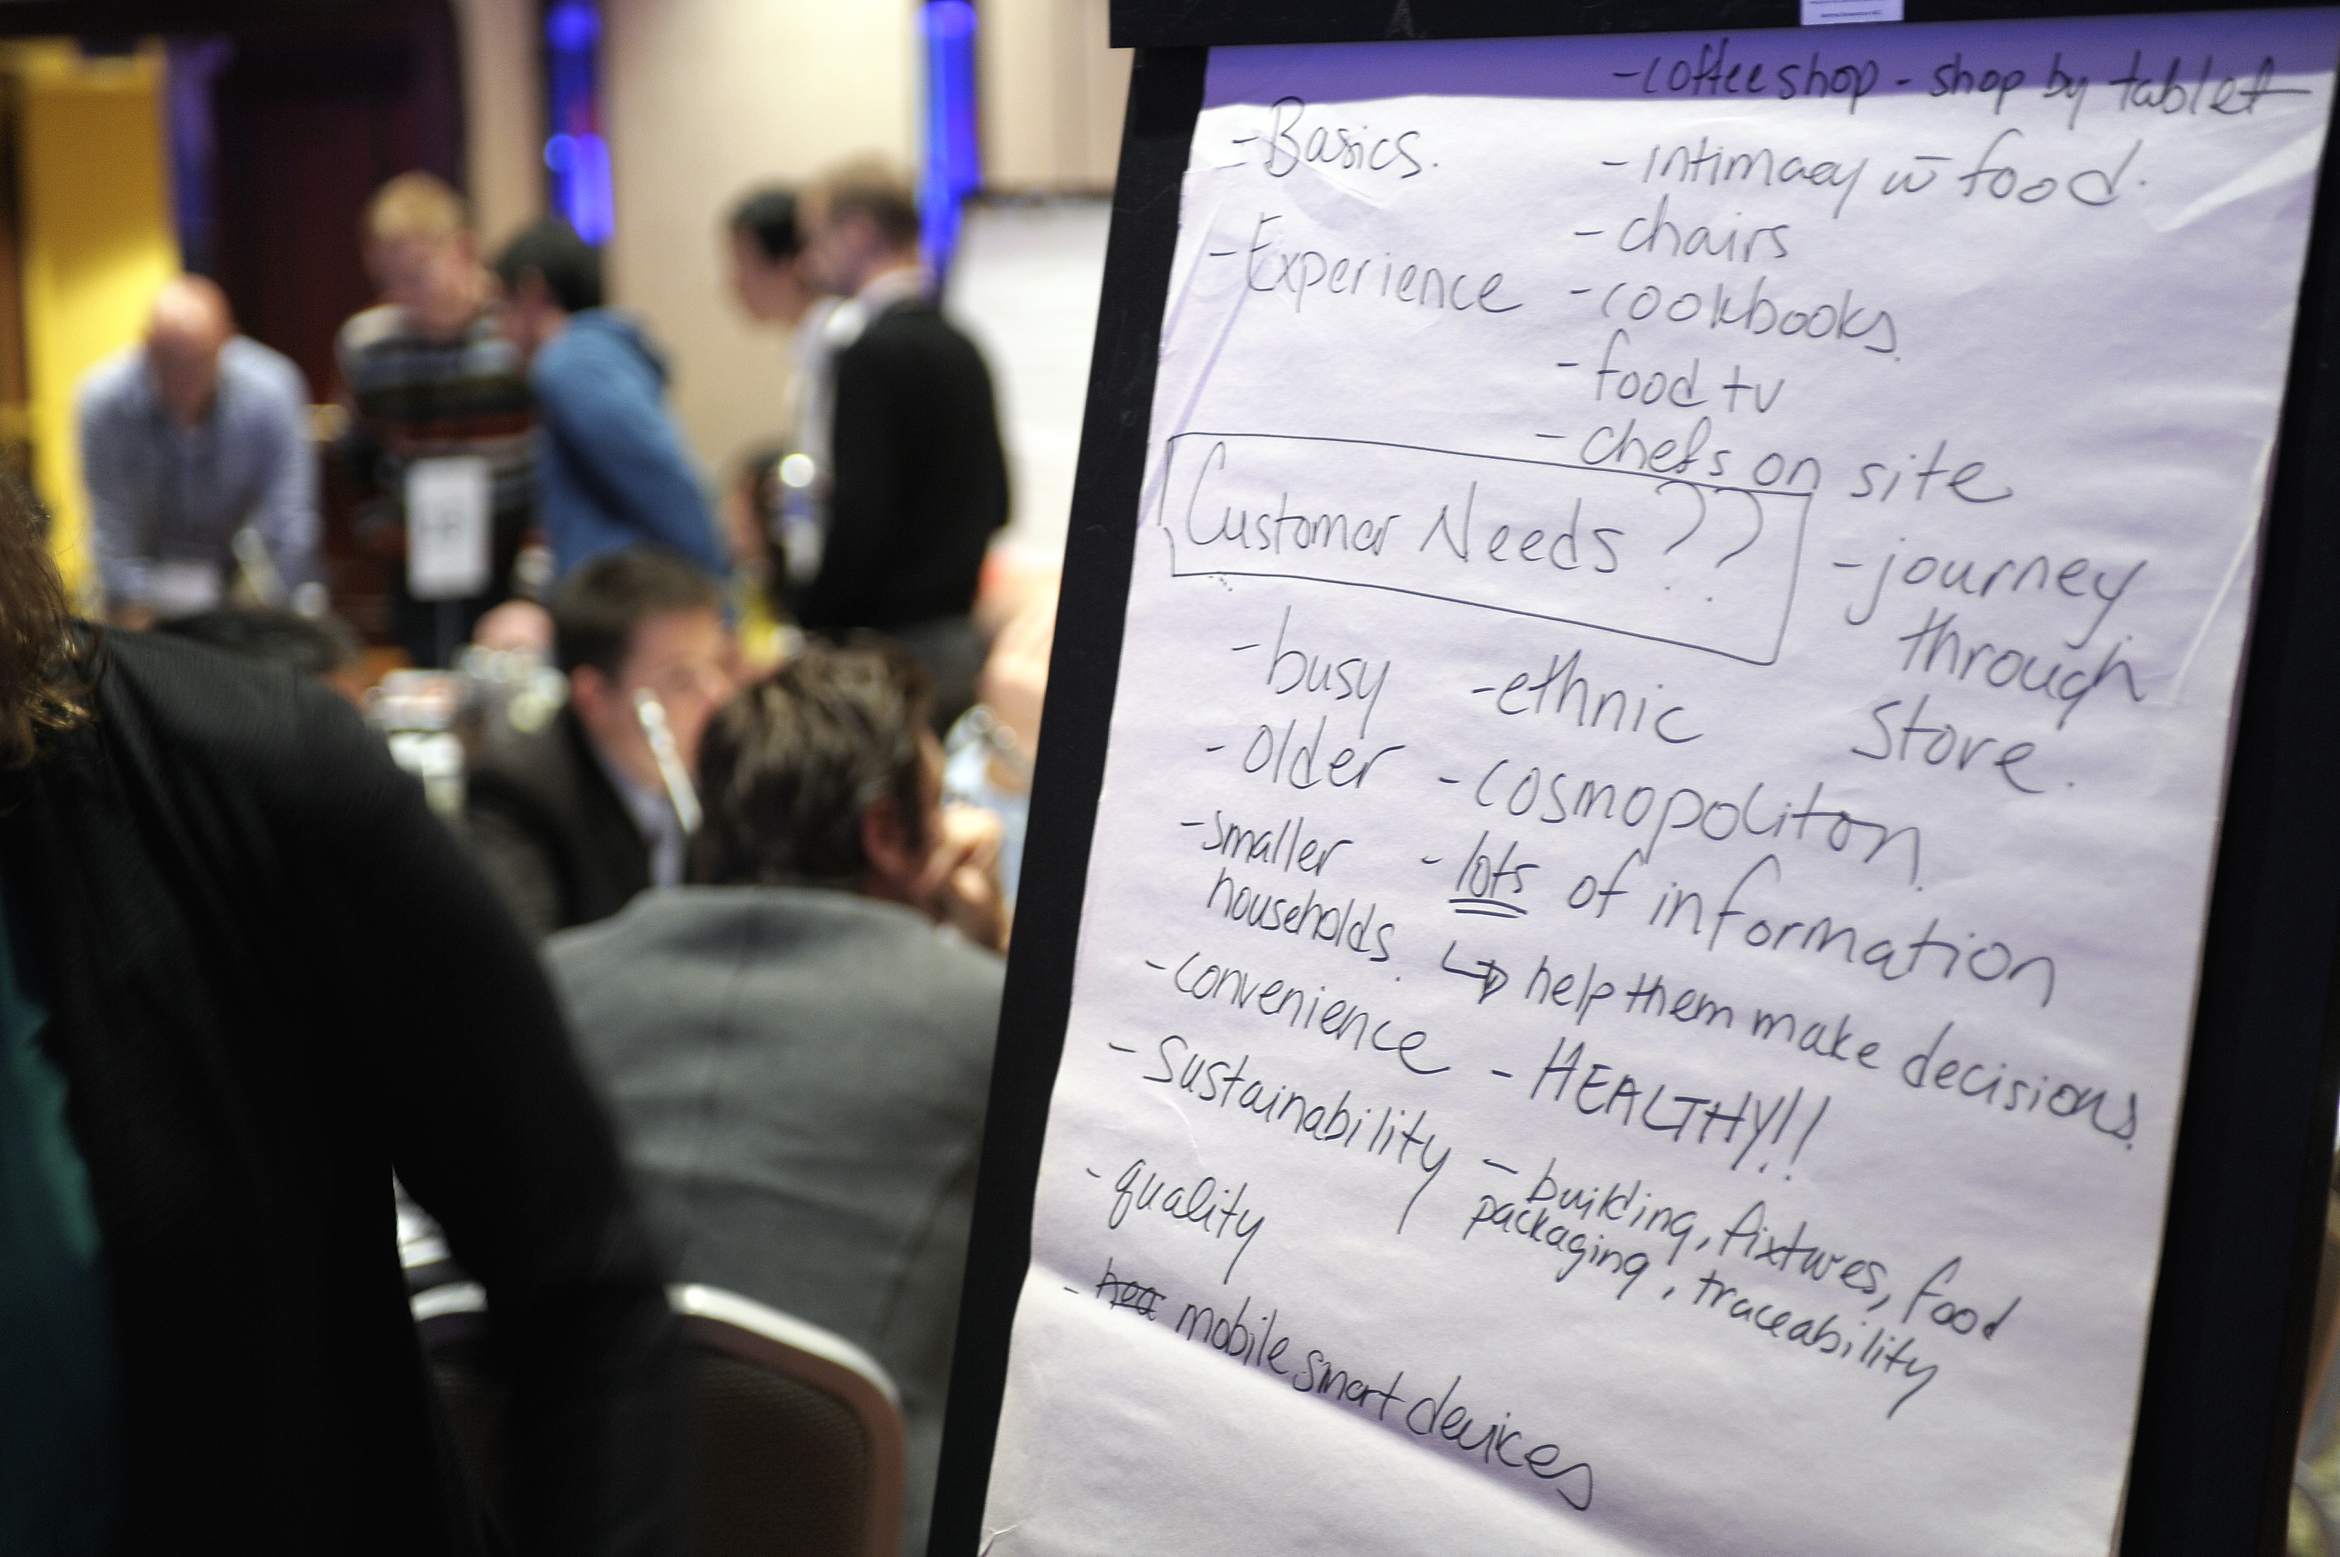 -coffee shop - shop by tablet
-Basics.
-intimacy w̄ food.
-chairs
-Experience
-cookbooks.
-food tv
-chefs on site
Customer Needs ??
-journey
through
Store.
-busy
-ethnic
-older
-cosmopoliton.
-smaller
households.
-lots of information
↳ help them make decisions.
-convenience
-HEALTHY!!
-Sustainability
-building, fixtures, food
packaging, traceability
-quality
- mobile smart devices